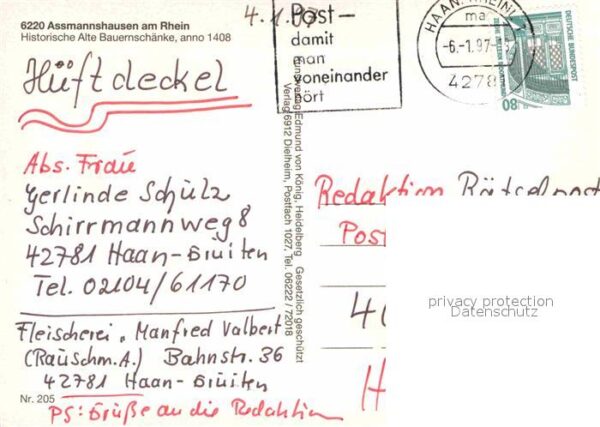 6220 Assmannshausen am Rhein
Historische Alte Bauernschänke, anno 1408
4.1.97
Hüftdeckel
Abs. Frau
Gerlinde Schulz
Schirrmannweg 8
42781 Haan-Gruiten
Tel. 02104/61170
Fleischerei, Manfred Valbert
(Rauschm. A.) Bahnstr. 36
42781 Haan-Gruiten
Nr. 205
PS: Grüße an die Redaktion
Kunstverlag Edmund von König, Heidelberg Gesetzlich geschützt
Verlag 6912 Dielheim, Postfach 1027, Tel. 06222 / 72018
Post –
damit
man
voneinander
hört
HAAN, RHEINL
ma
-6.-1.97-
4278
DEUTSCHE BUNDESPOST
80
Redaktion
Post
40
H
privacy protection
Datenschutz